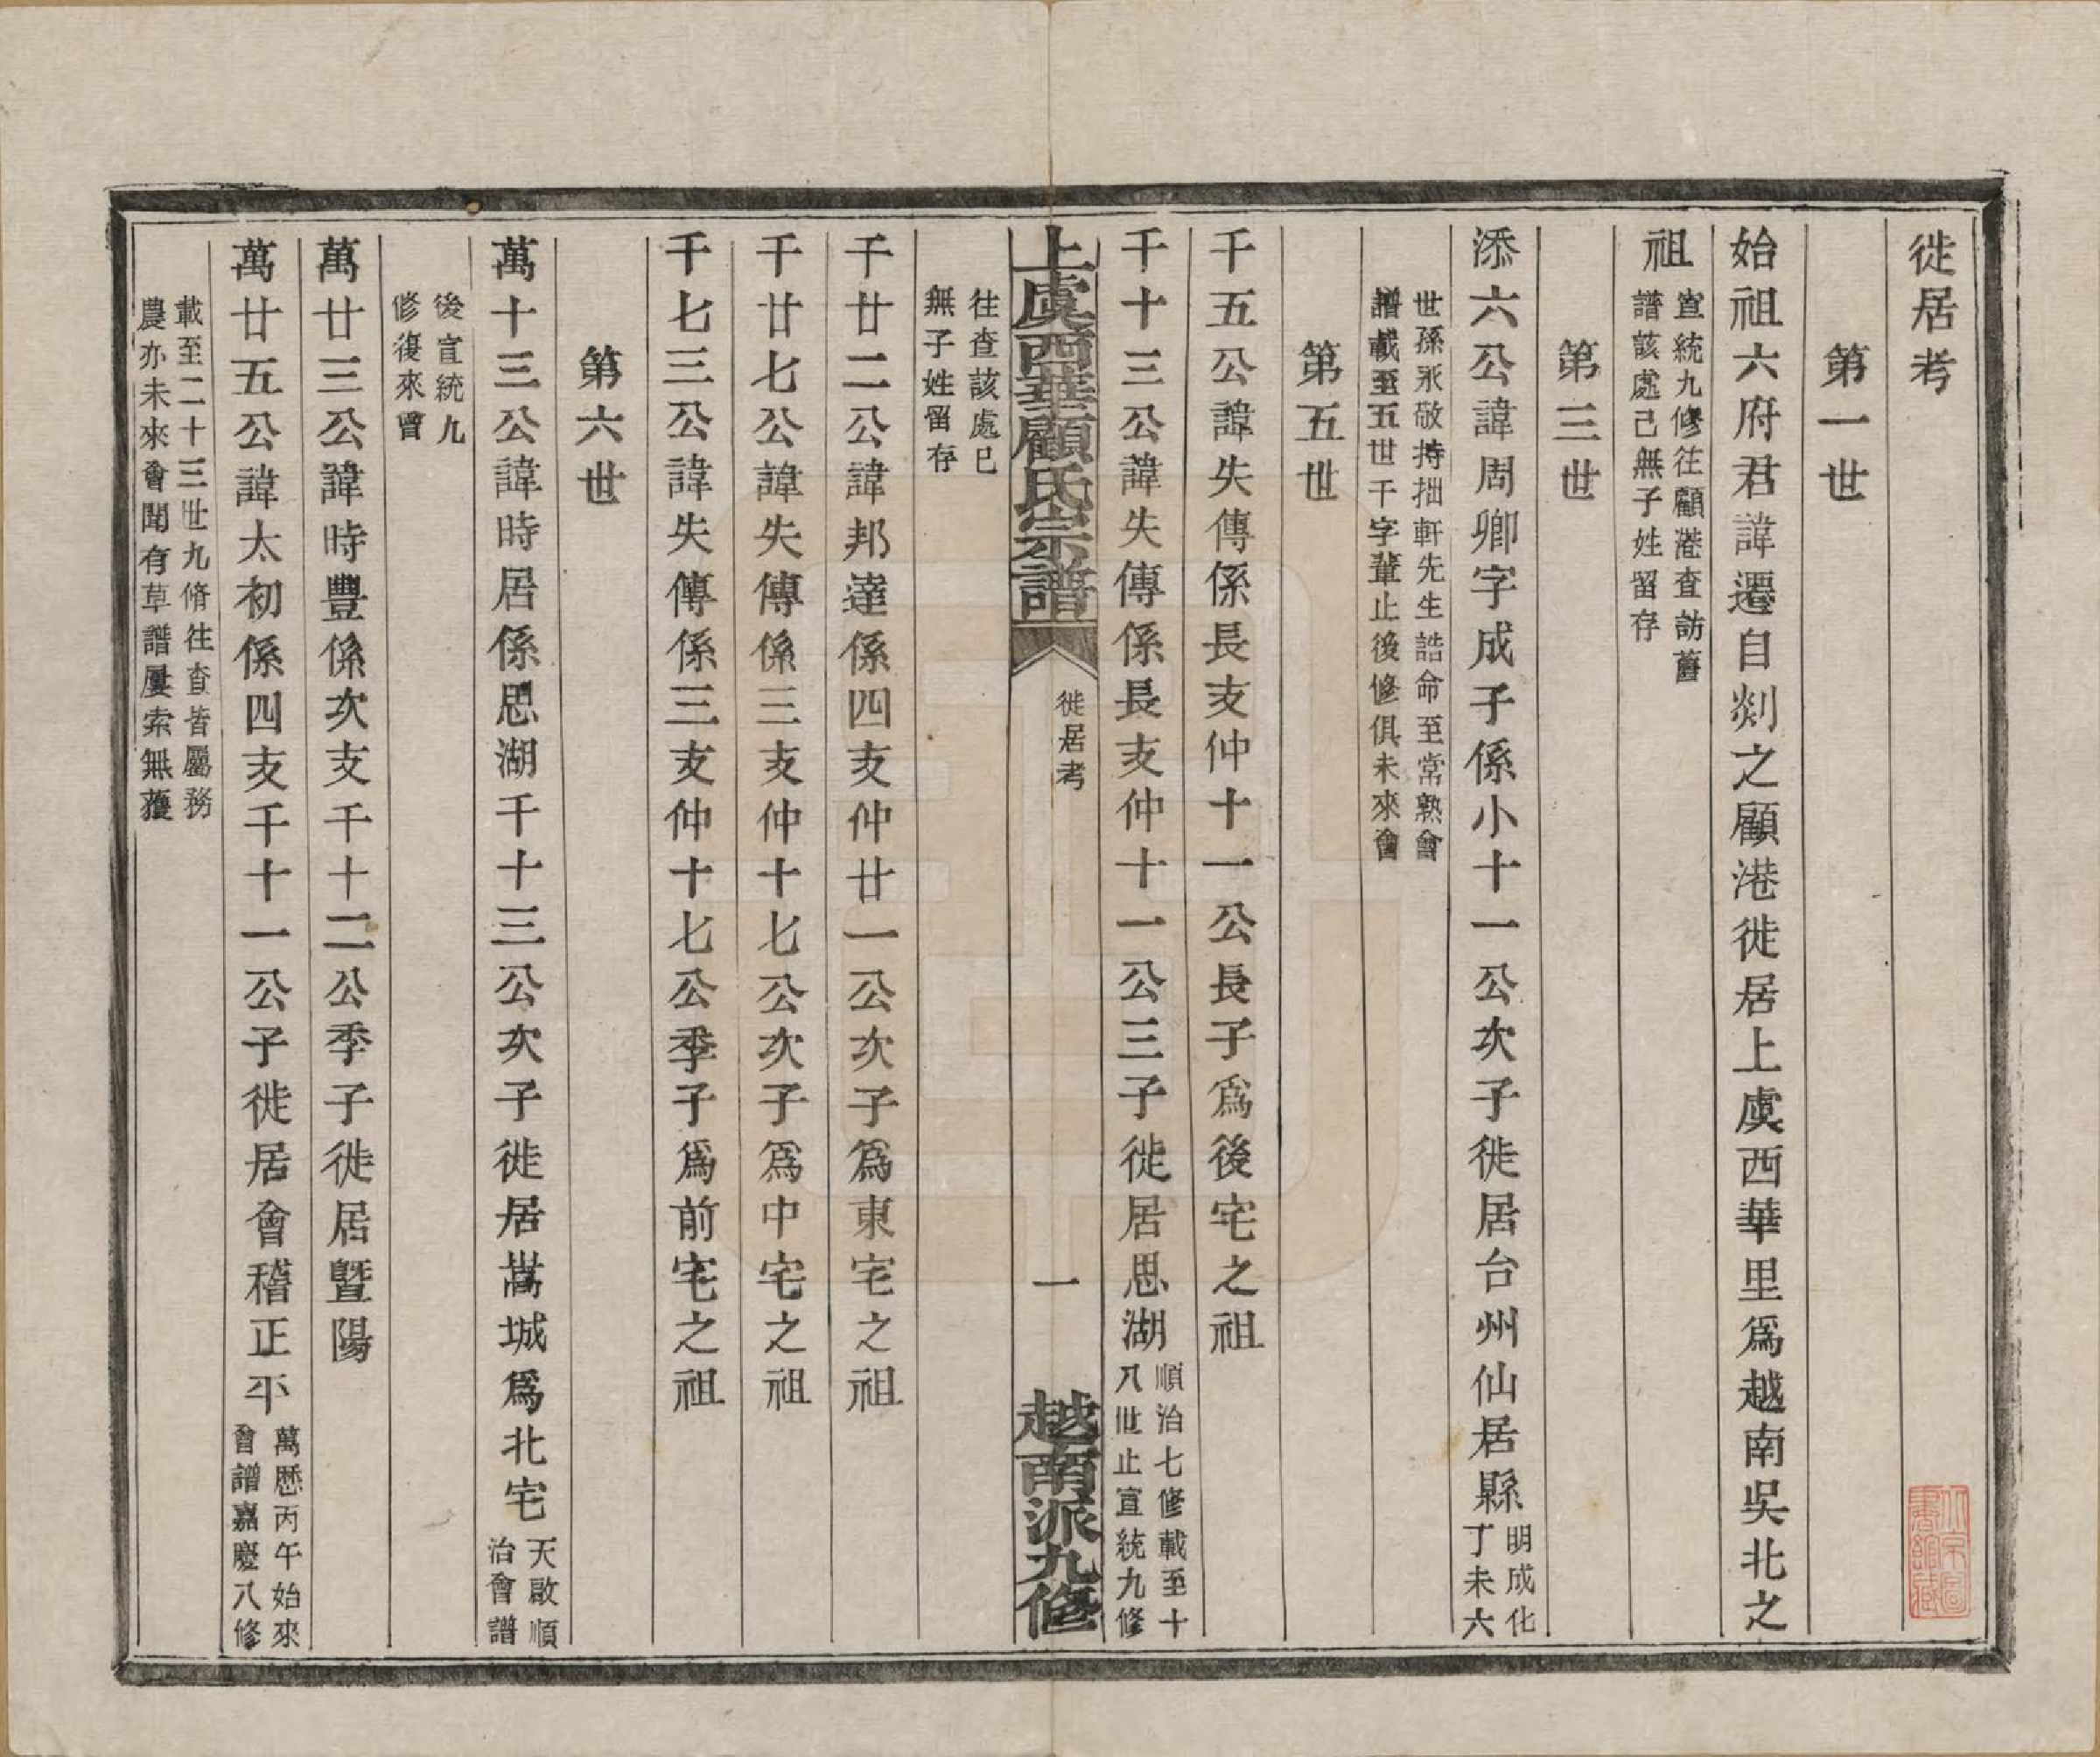 徙居考
第一世
始祖六府君諱遷自剡之顧港徙居上虞西華里爲越南吳北之
祖
宣統九修往顧港查訪舊
譜該處已無子姓留存
第三世
添六公諱周卿字成子係小十一公次子徙居台州仙居縣
明成化
丁未六
世孫永敬持拙軒先生誥命至常熟會
譜載至五世千字輩止後修俱未來會
第五世
千五公諱失傳係長支仲十一公長子爲後宅之祖
千十三公諱失傳係長支仲十一公三子徙居思湖
順治七修載至十
八世止宣統九修
上虞西華顧氏宗譜
徙居考
一
越南派九修
往查該處已
無子姓留存
千廿二公諱邦達係四支仲廿一公次子爲東宅之祖
千廿七公諱失傳係三支仲十七公次子爲中宅之祖
千七三公諱失傳係三支仲十七公季子爲前宅之祖
第六世
萬十三公諱時居係思湖千十三公次子徙居嵩城爲北宅
天啟順
治會譜
後宣統九
修復來會
萬廿三公諱時豐係次支千十二公季子徙居暨陽
萬廿五公諱太初係四支千十一公子徙居會稽正平
萬歷丙午始來
會譜嘉慶八修
載至二十三世九脩往查皆屬務
農亦未來會聞有草譜屢索無獲